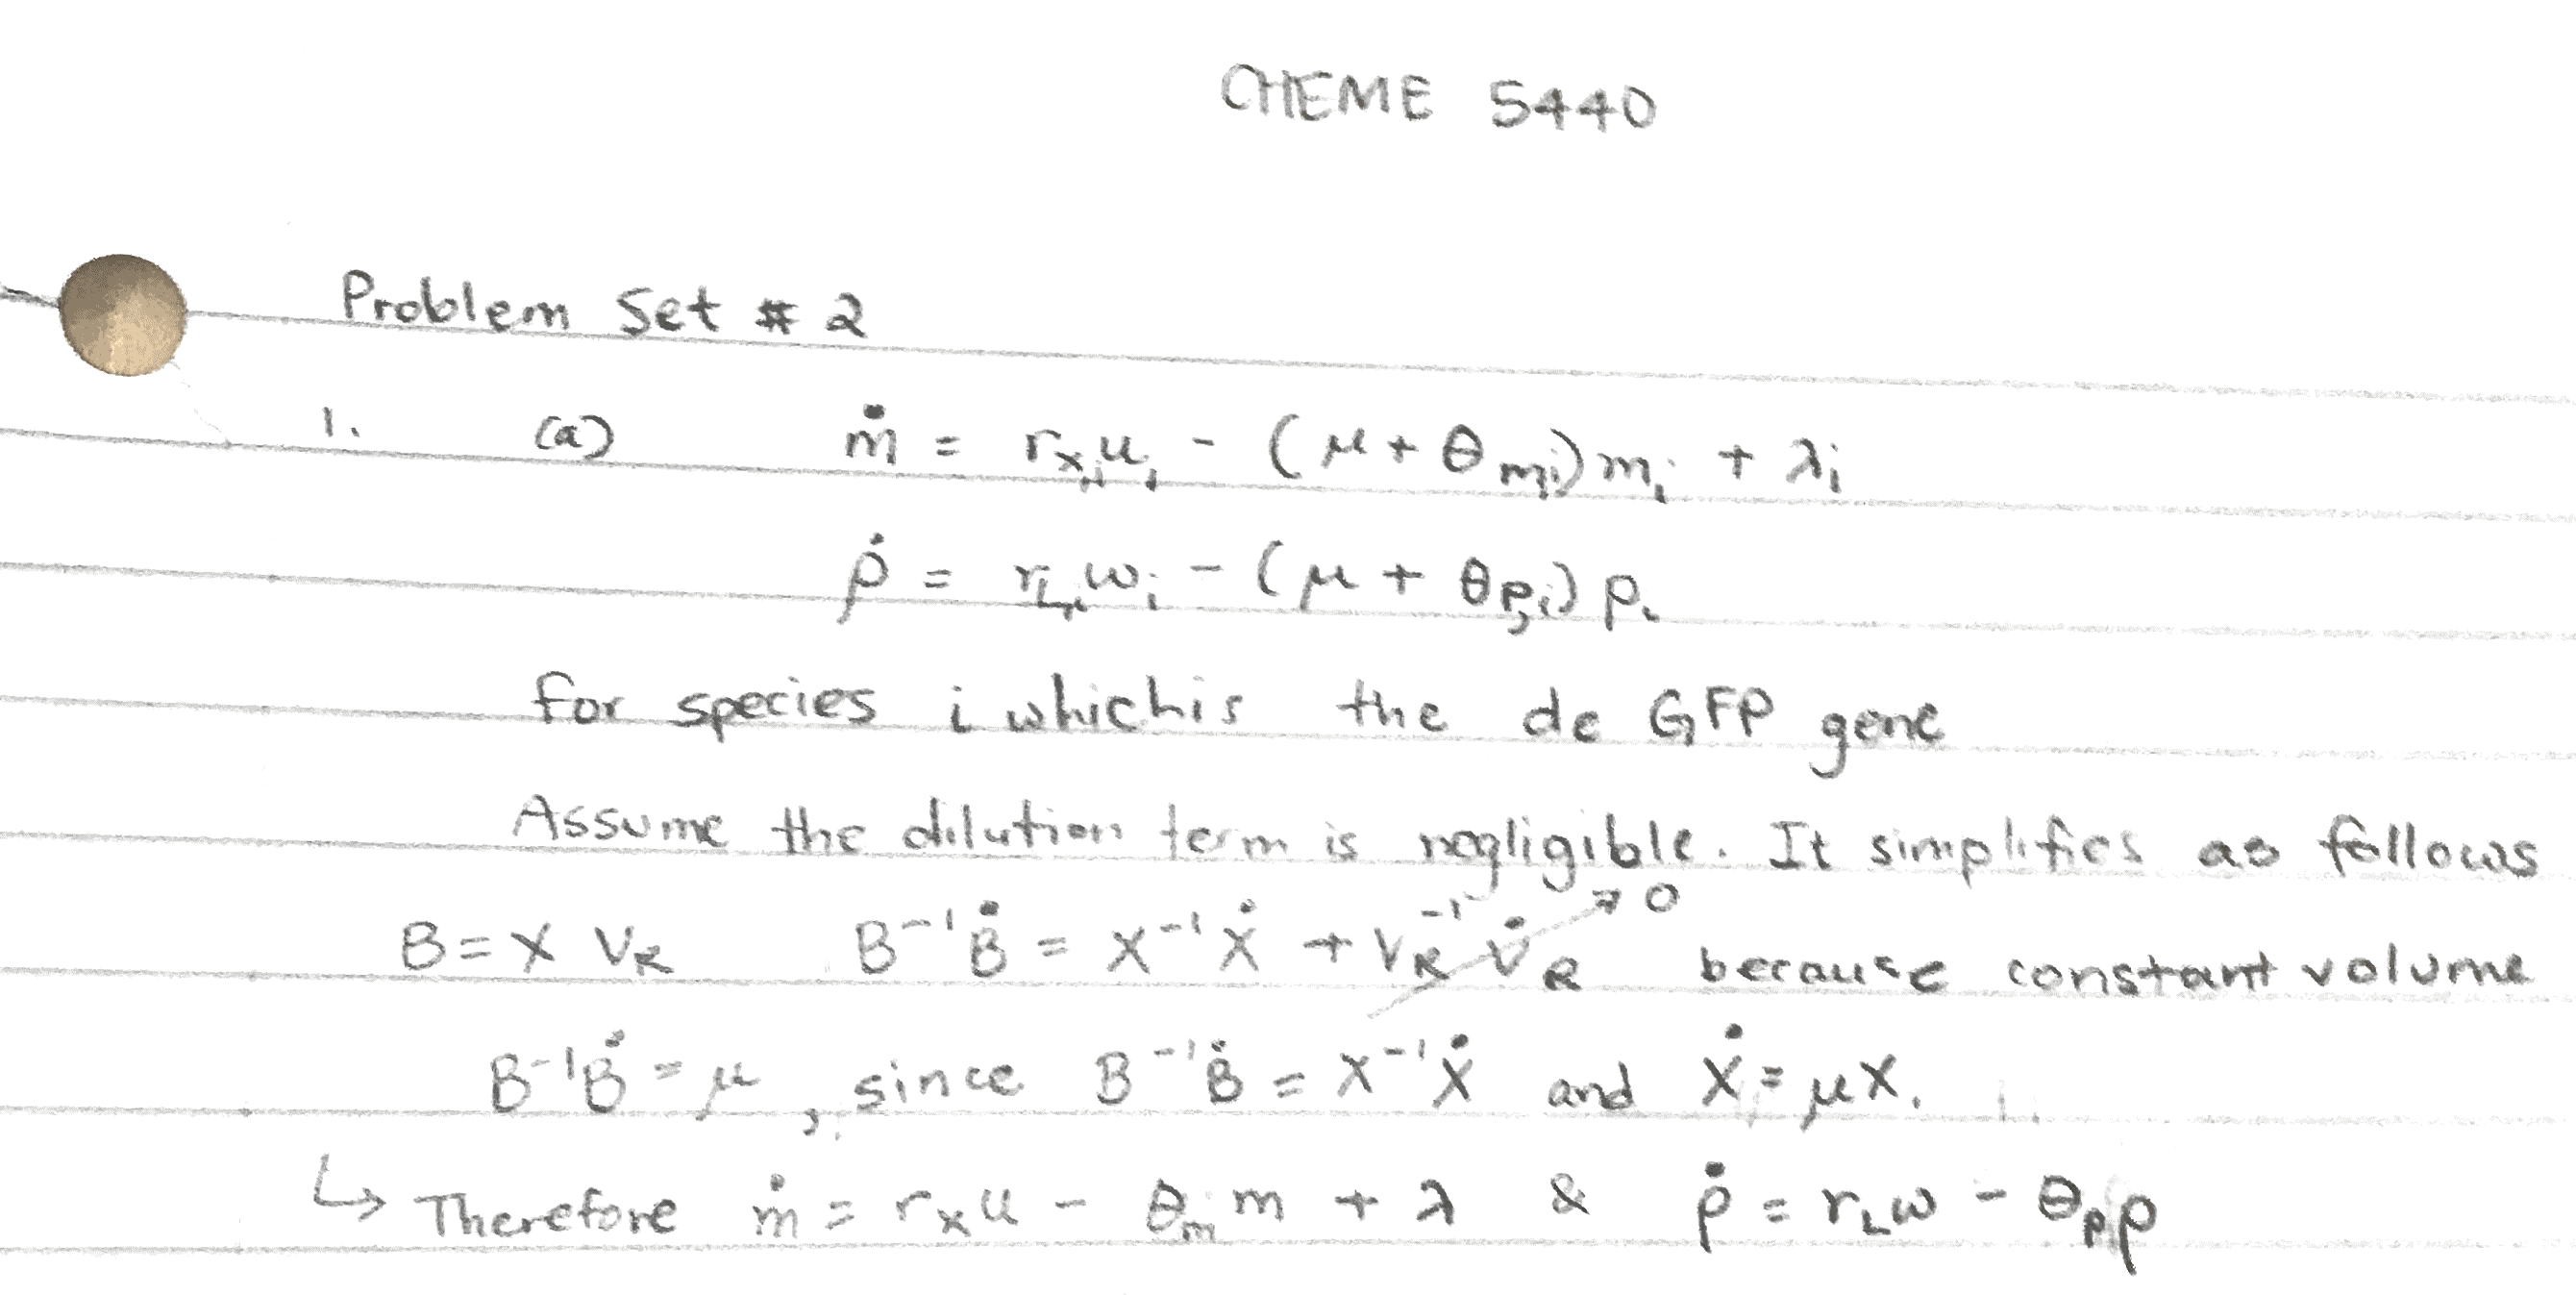 CHEME 5440
Problem Set # 2
1. (a) ṁ = r_{X,i} u_i - (μ + θ_{m,i}) m_i + λ_i
ṗ = r_{L,i} w_i - (μ + θ_{p,i}) p_i
for species i which is the de GFP gene
Assume the dilution term is negligible. It simplifies as follows
B = X V_R B^{-1} Ḃ = X^{-1} Ẋ + V_R^{-1} V̇_R → 0 because constant volume
B^{-1} Ḃ = μ, since B^{-1} Ḃ = X^{-1} Ẋ and Ẋ = μX.
↳ Therefore ṁ = r_X u - θ_m m + λ & ṗ = r_L w - θ_p p